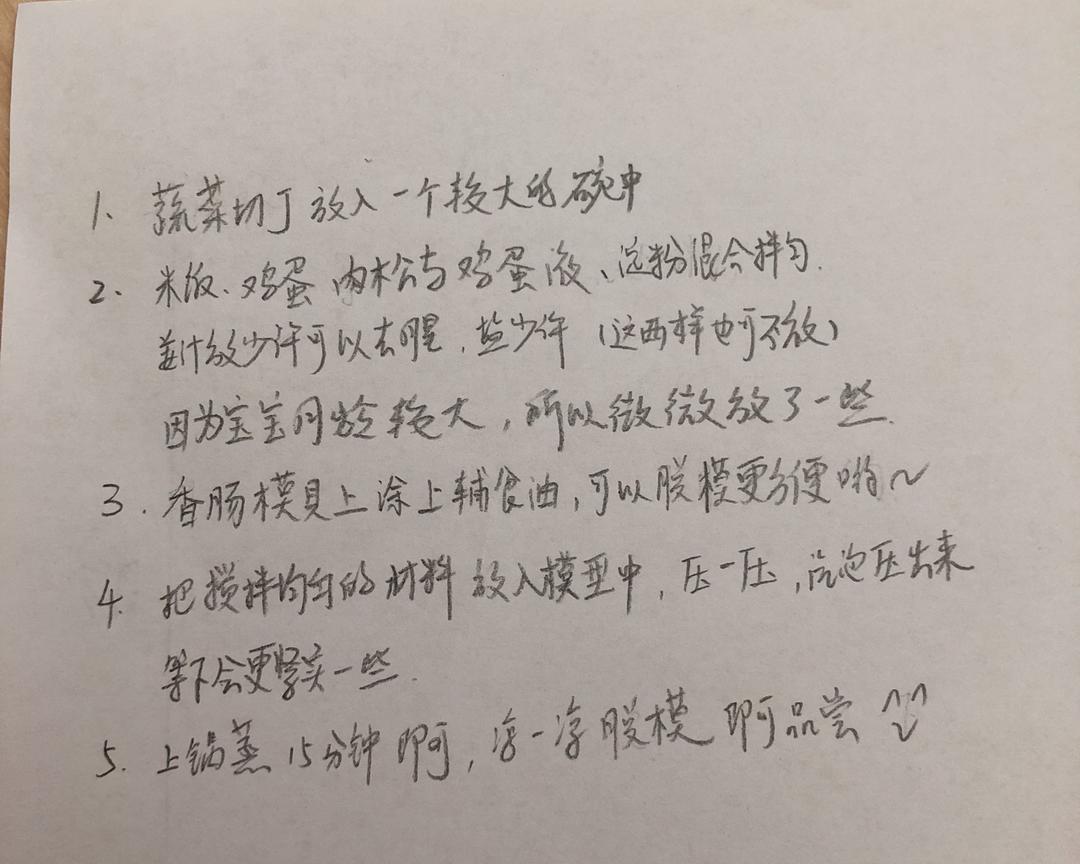 1、蔬菜切丁放入一个较大的碗中
2、米饭、鸡蛋肉松与鸡蛋液、淀粉混合拌匀.
姜汁放少许可以去腥,盐少许(这两样也可不放)
因为宝宝月龄较大,所以微微放了一些.
3.香肠模具上涂上辅食油,可以脱模更方便哟~
4.把搅拌均匀的材料放入模型中,压一压,气泡压出来
等下会更紧实一些.
5.上锅蒸15分钟即可,凉一凉脱模即可品尝